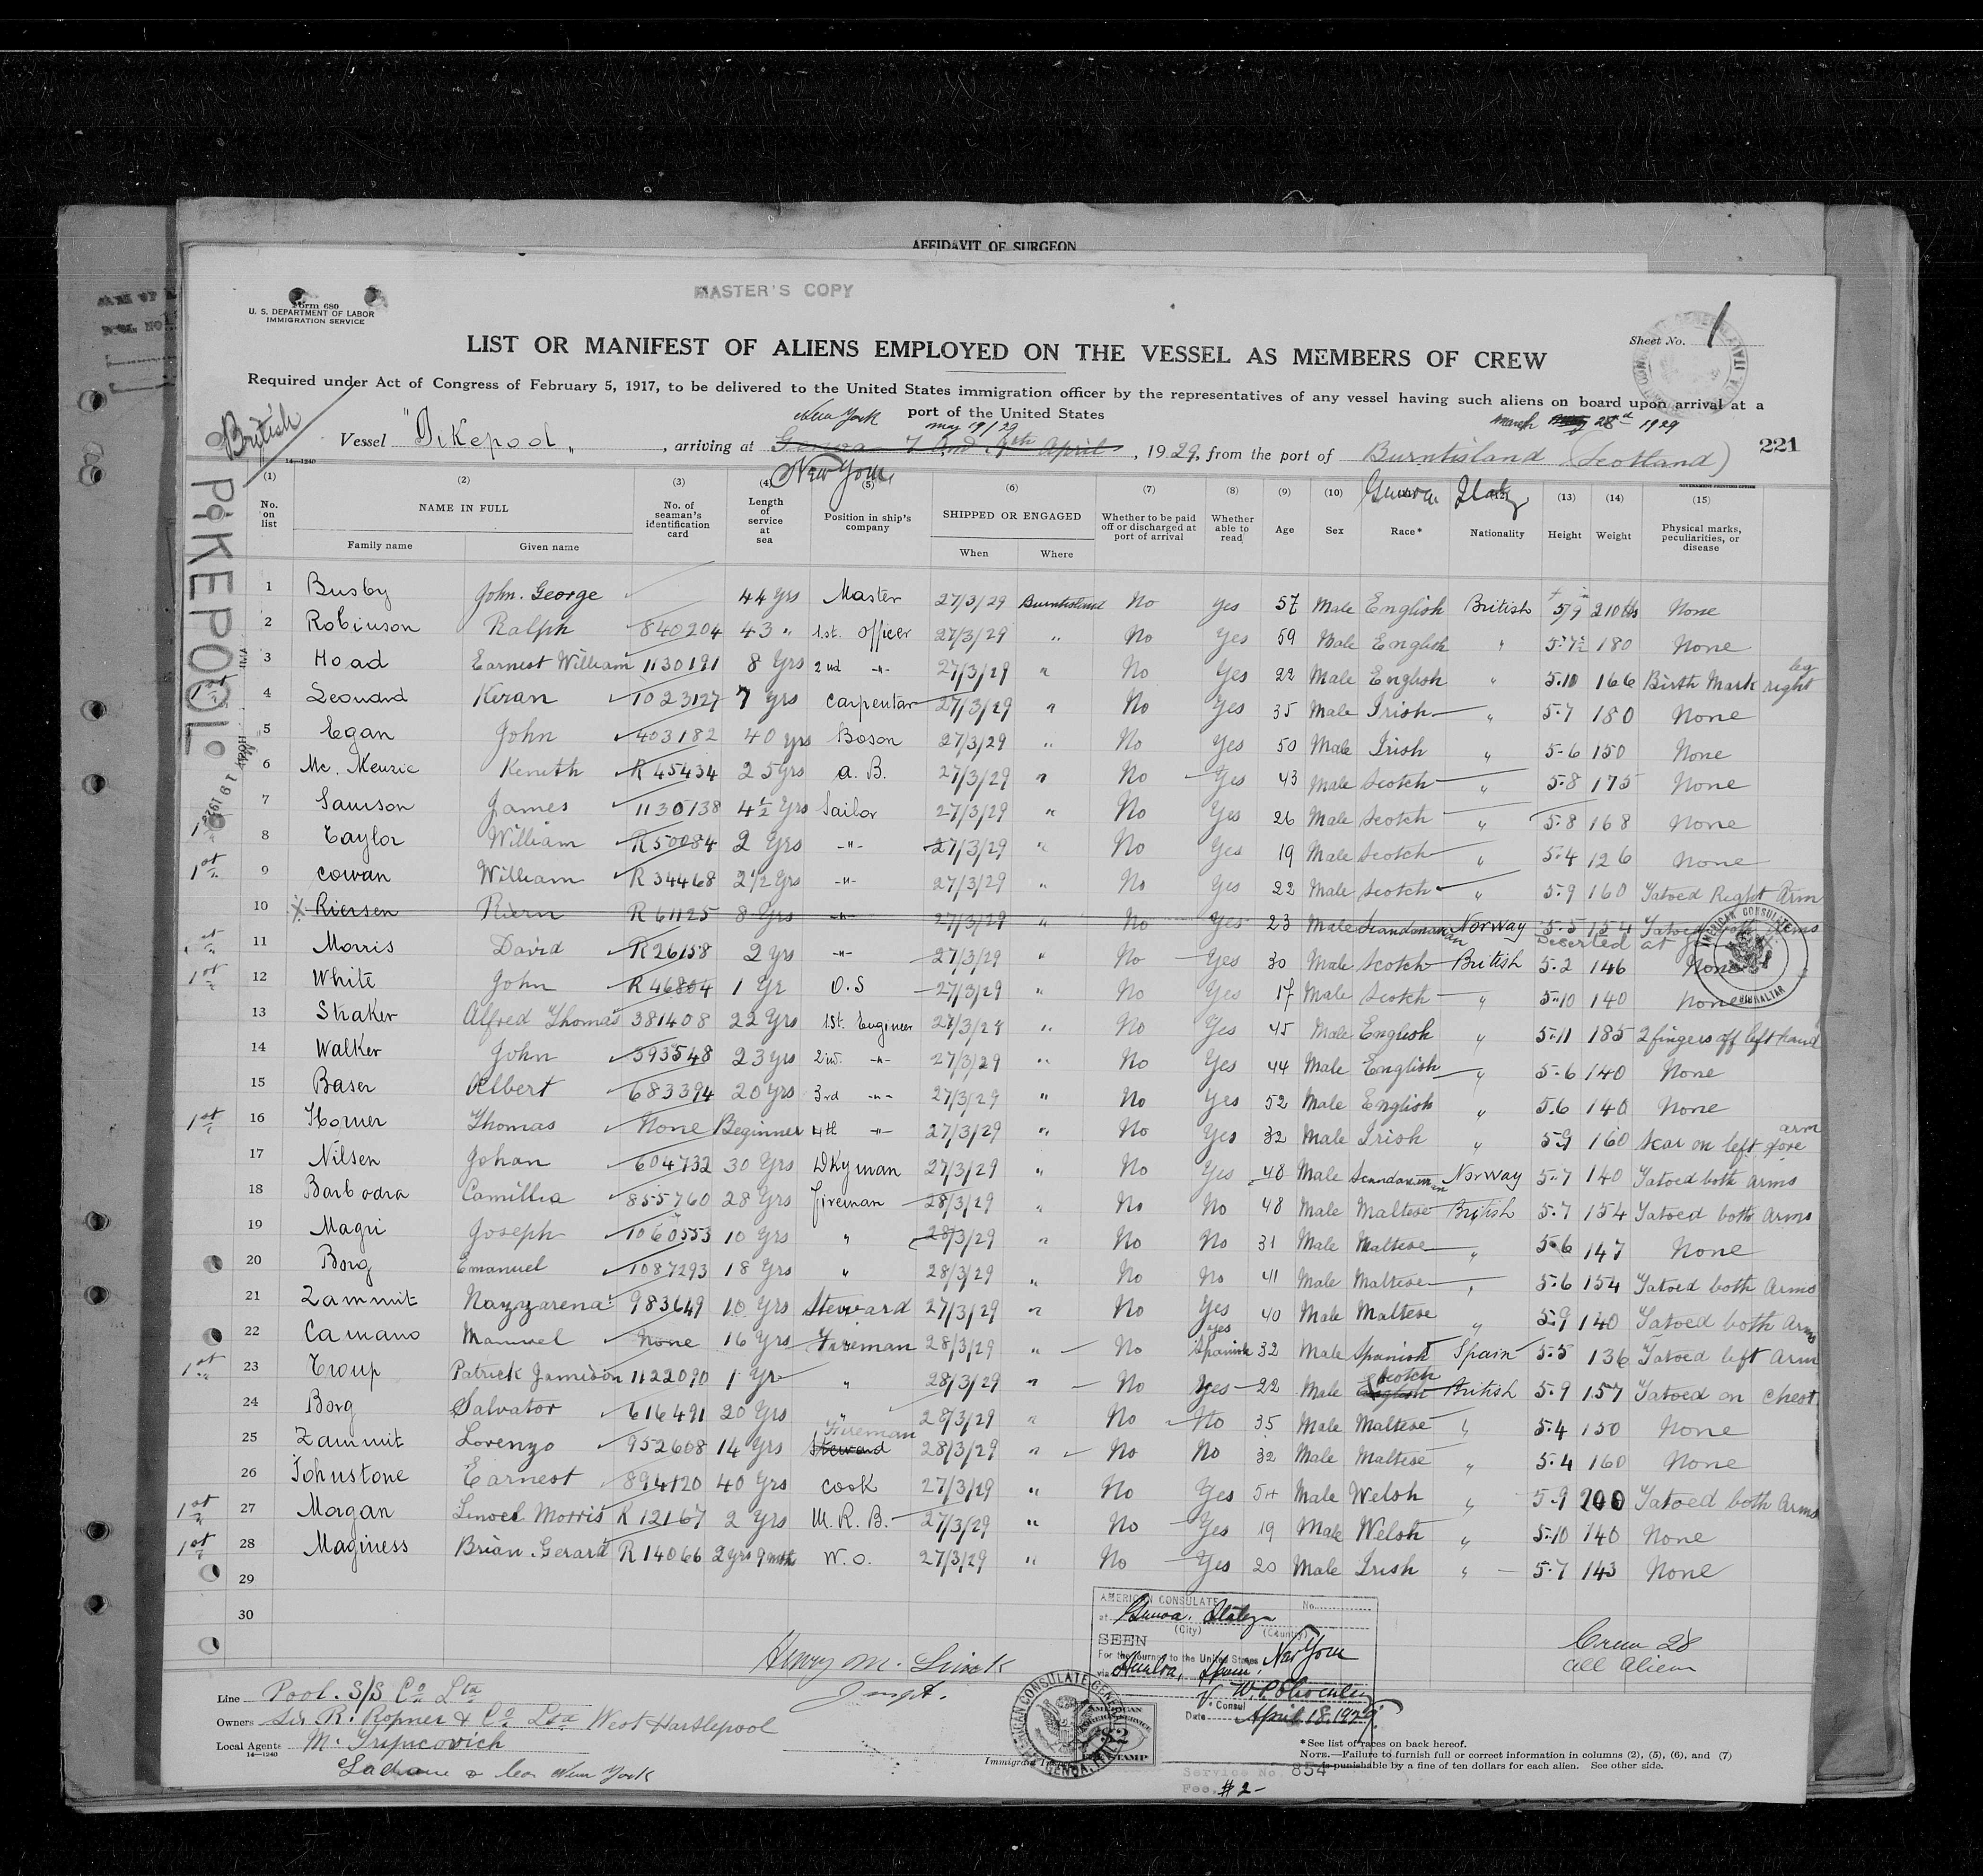 AFFIDAVIT OF SURGEON
MASTER'S COPY
Form 680
U. S. DEPARTMENT OF LABOR
IMMIGRATION SERVICE
Sheet No. 1
LIST OR MANIFEST OF ALIENS EMPLOYED ON THE VESSEL AS MEMBERS OF CREW
Required under Act of Congress of February 5, 1917, to be delivered to the United States immigration officer by the representatives of any vessel having such aliens on board upon arrival at a
port of the United States
British
New York
May 19/29
March 28 1929
Vessel "Pikepool", arriving at Genoa April, 1929, from the port of Burntisland (Scotland)
221
New York
Genoa Italy
14—1240
PIKEPOOL
(1) (2) (3) (4) (5) (6) (7) (8) (9) (10) (13) (14) (15)
No. on list NAME IN FULL No. of seaman's identification card Length of service at sea Position in ship's company SHIPPED OR ENGAGED Whether to be paid off or discharged at port of arrival Whether able to read Age Sex Race* Nationality Height Weight Physical marks, peculiarities, or disease
Family name Given name When Where
1 Busby John. George 44 yrs Master 27/3/29 Burntisland No Yes 57 Male English British 5/9 210 lbs None
2 Robinson Ralph 840204 43 " 1st. Officer 27/3/29 " No Yes 59 Male English " 5·7½ 180 None
3 Hoad Earnest William 1130191 8 Yrs 2nd -"- 27/3/29 " No Yes 22 Male English " 5.10 166 Birth Mark right leg
4 Leonard Kiran 1023127 7 yrs Carpentar 27/3/29 " No Yes 35 Male Irish " 5·7 180 None
5 Egan John 403182 40 yrs Boson 27/3/29 " No Yes 50 Male Irish " 5-6 150 None
6 Mc. Kenzie Keneth R 45434 25 yrs A. B. 27/3/29 " No Yes 43 Male Scotch " 5.8 175 None
7 Samson James 1130138 4½ Yrs Sailor 27/3/29 " No Yes 26 Male Scotch " 5.8 168 None
8 Taylor William R 50084 2 Yrs -"- 27/3/29 " No Yes 19 Male Scotch " 5·4 126 None
1st 9 Cowan William R 34468 2½ Yrs -"- 27/3/29 " No Yes 22 Male Scotch " 5·9 160 Tatoed Right Arm
X 10 Riersen Riern R 61125 8 Yrs -"- 27/3/29 " No Yes 23 Male Scandanavian Norway 5·5 154 Tatoed both Arms
Deserted at
11 Morris David R 26158 2 yrs -"- 27/3/29 " No Yes 30 Male Scotch British 5.2 146 None
1st 12 White John R 46804 1 Yr O.S 27/3/29 " No Yes 17 Male Scotch " 5·10 140 None
13 Straker Alfred Thomas 381408 22 Yrs 1st. Engineer 27/3/29 " No Yes 45 Male English " 5·11 185 2 fingers off left hand
14 Walker John 393548 23 yrs 2nd. -"- 27/3/29 " No Yes 44 Male English " 5·6 140 None
15 Baser Albert 683394 20 Yrs 3rd -"- 27/3/29 " No Yes 52 Male English " 5.6 140 None
1st 16 Horner Thomas None Beginner 4th -"- 27/3/29 " No Yes 32 Male Irish " 5·9 160 Scar on left fore arm
17 Nilsen Johan 604732 30 Yrs Dkyman 27/3/29 " No Yes 48 Male Scandanavian Norway 5·7 140 Tatoed both arms
18 Barbodra Camillia 855760 28 Yrs fireman 28/3/29 " No No 48 Male Maltese British 5·7 154 Tatoed both Arms
19 Magri Joseph 1060553 10 Yrs " 28/3/29 " No No 31 Male Maltese " 5·6 147 None
20 Borg Emanuel 1087293 18 Yrs " 28/3/29 " No No 41 Male Maltese " 5·6 154 Tatoed both Arms
21 Zammit Nazzarena 983649 10 Yrs Steward 27/3/29 " No Yes 40 Male Maltese " 5·9 140 Tatoed both Arms
22 Camano Manuel None 16 Yrs Fireman 28/3/29 " No yes Spanish 32 Male Spanish Spain 5·5 136 Tatoed left Arm
1st 23 Troup Patrick Jamieson 1122090 1 Yr " 28/3/29 " No Yes 22 Male English Scotch British 5.9 157 Tatoed on Chest
24 Borg Salvator 616491 20 Yrs " 28/3/29 " No No 35 Male Maltese " 5.4 150 None
25 Zammit Lorenzo 952608 14 Yrs Steward Fireman 28/3/29 " No No 32 Male Maltese " 5.4 160 None
26 Johnstone Earnest 894120 40 Yrs Cook 27/3/29 " No Yes 54 Male Welsh " 5·9 200 Tatoed both Arms
1st 27 Morgan Linoel Morris R 12167 2 Yrs M. R. B. 27/3/29 " No Yes 19 Male Welsh " 5·10 140 None
1st 28 Maginess Brian. Gerard R 14066 2 yrs 9 mth W. O. 27/3/29 " No Yes 20 Male Irish " 5·7 143 None
29
30
AMERICAN CONSULATE
GIBRALTAR
AMERICAN CONSULATE No.
at Genoa, Italy
(City) (Country)
SEEN
For the journey to the United States
via Huelva, Spain, New York
V. Consul
Date April 18, 1929.
Crew 28
all Alien
Henry M.
Inspt.
Line Pool. S/S Co Ltd
Owners Sir R. Ropner & Co. Ltd West Hartlepool
Local Agents M. Tripcovich
14—1240
& Co. New York
Immigrant
AMERICAN CONSULATE GENERAL
GENOA, ITALY
AMERICAN
$2
STAMP
*See list of races on back hereof.
NOTE.—Failure to furnish full or correct information in columns (2), (5), (6), and (7)
is punishable by a fine of ten dollars for each alien. See other side.
Service No. 854
Fee. $2-